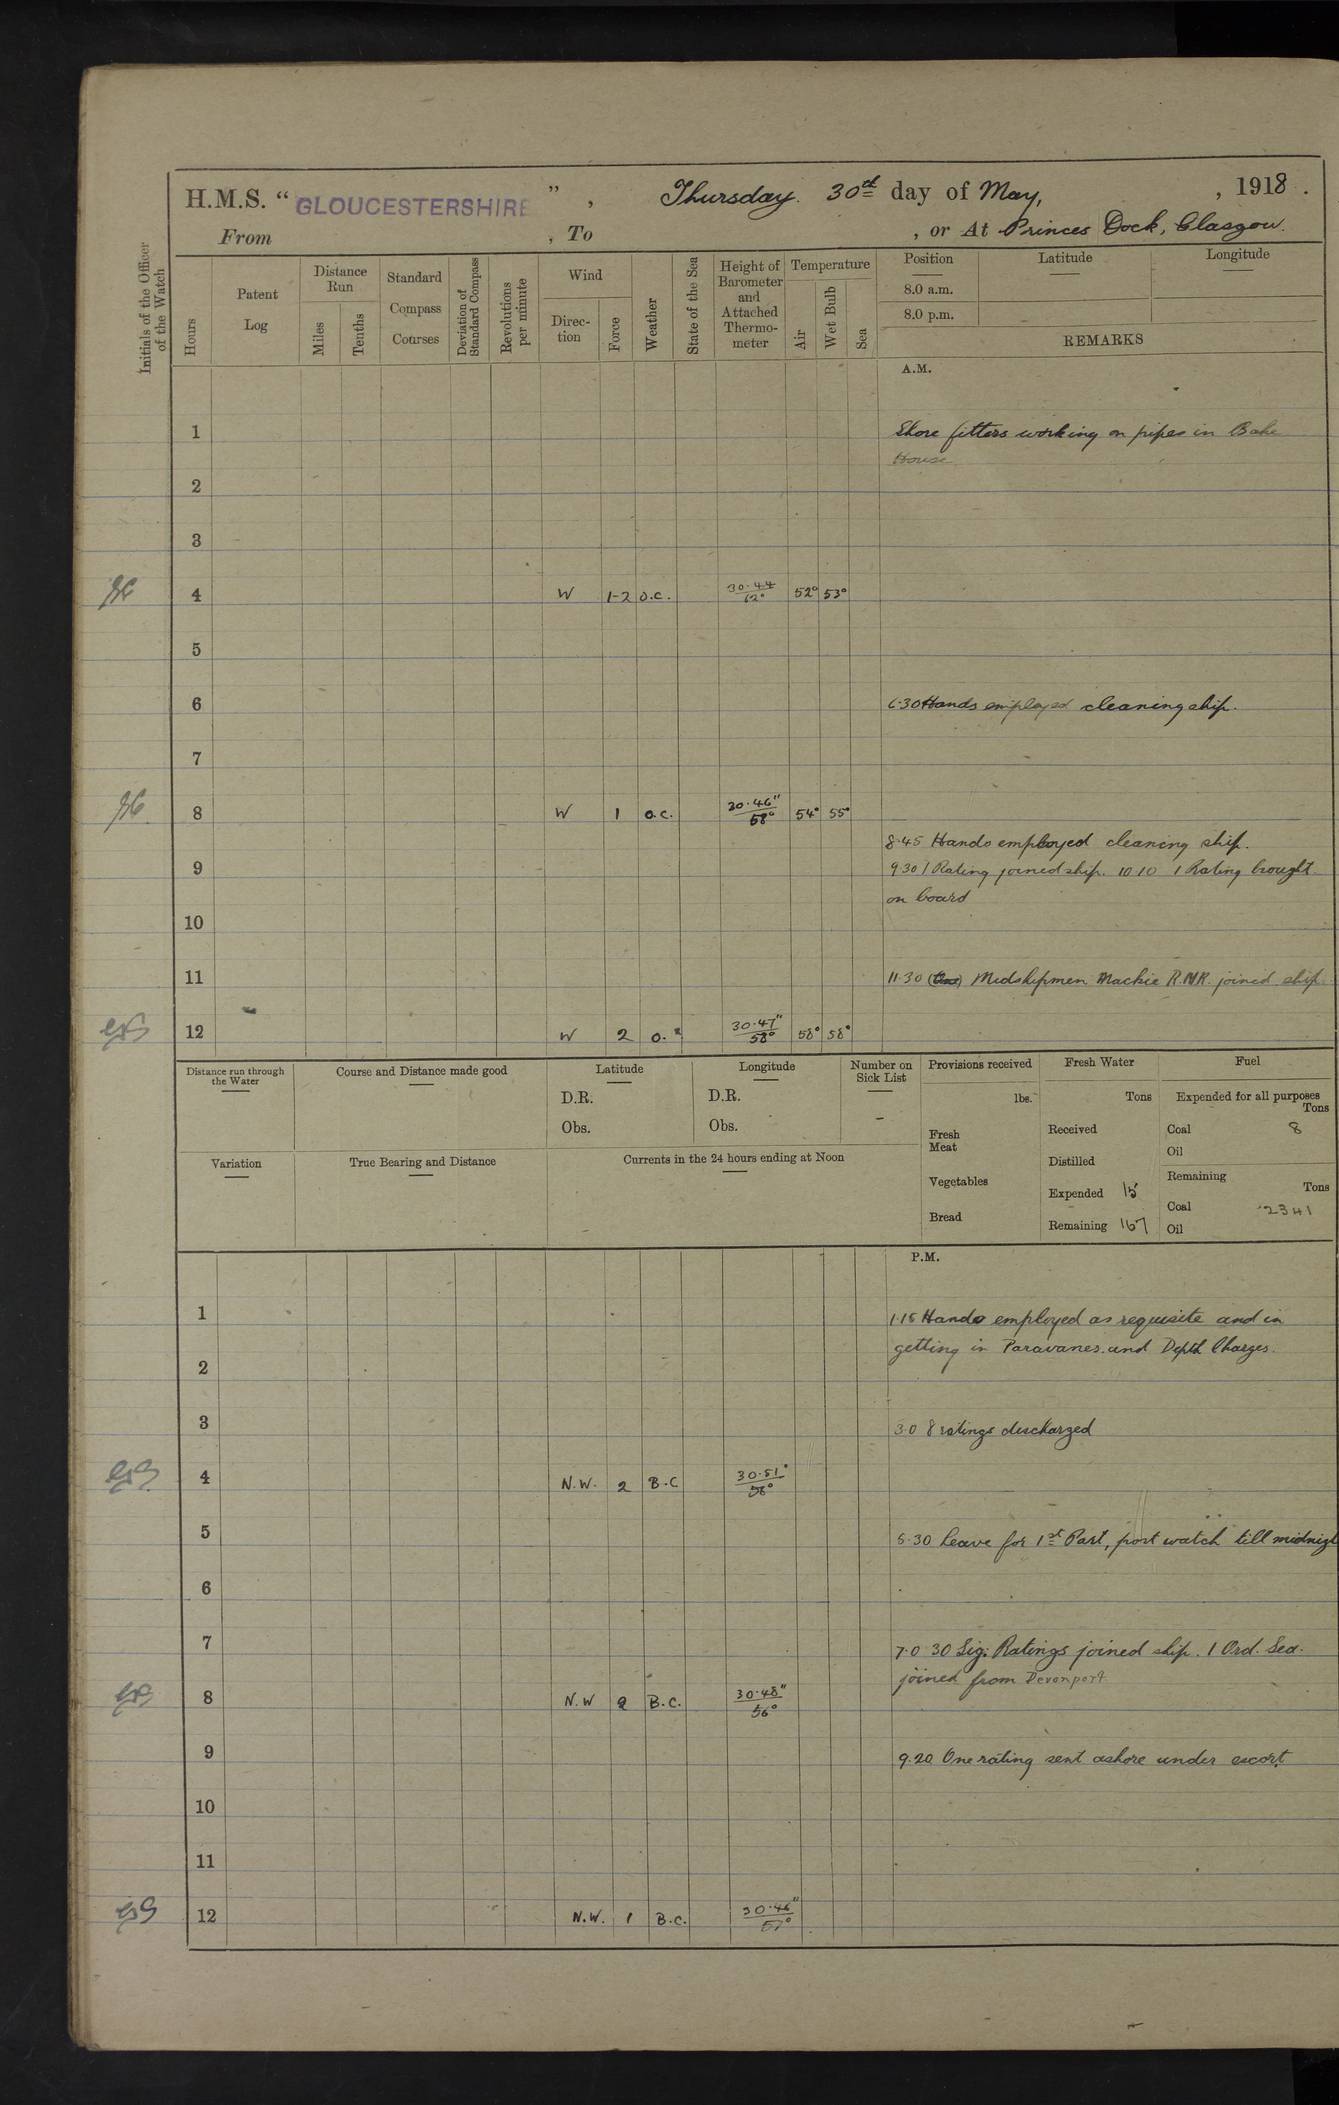 H.M.S. "GLOUCESTERSHIRE", Thursday. 30th day of May, , 1918.
From , To , or At Princes Dock, Glasgow.
Initials of the Officer of the Watch
Hours
Patent Log
Distance Run
Miles
Tenths
Standard Compass Courses
Deviation of Standard Compass
Revolutions per minute
Wind
Direction
Force
Weather
State of the Sea
Height of Barometer and Attached Thermometer
Temperature
Air
Wet Bulb
Sea
Position
8.0 a.m.
8.0 p.m.
Latitude
Longitude
REMARKS
A.M.
1 Shore fitters working on pipes in Bake
House
2
3
4 W 1-2 O.C. 30.44 62° 52° 53°
5
6 6.30 Hands employed cleaning ship.
7
8 W 1 O.C. 30.46" 58° 54° 55°
8.45 Hands employed cleaning ship.
9 9 30 1 Rating joined ship. 10 10 1 Rating brought
on board
10
11 11.30 Midshipmen Mackie R.N.R. joined ship.
12 W 2 O. 30.47" 58° 58° 58°
Distance run through the Water
Course and Distance made good
Latitude
D.R.
Obs.
Longitude
D.R.
Obs.
Number on Sick List
-
Variation
True Bearing and Distance
Currents in the 24 hours ending at Noon
Provisions received
lbs.
Fresh Meat
Vegetables
Bread
Fresh Water
Tons
Received
Distilled
Expended 15
Remaining 167
Fuel
Expended for all purposes
Tons
Coal 8
Oil
Remaining
Tons
Coal 2341
Oil
P.M.
1 1.15 Hands employed as requisite and in
getting in Paravanes and Depth Charges.
2
3 3.0 8 ratings discharged
4 N.W. 2 B.C 30.51° 58°
5 5.30 Leave for 1st Part, port watch till midnigt
6
7 7.0 30 Sig: Ratings joined ship. 1 Ord. Sea.
joined from Devonport
8 N.W 2 B.C. 30.48" 56°
9 9.20 One rating sent ashore under escort.
10
11
12 N.W. 1 B.C. 30.46" 57°